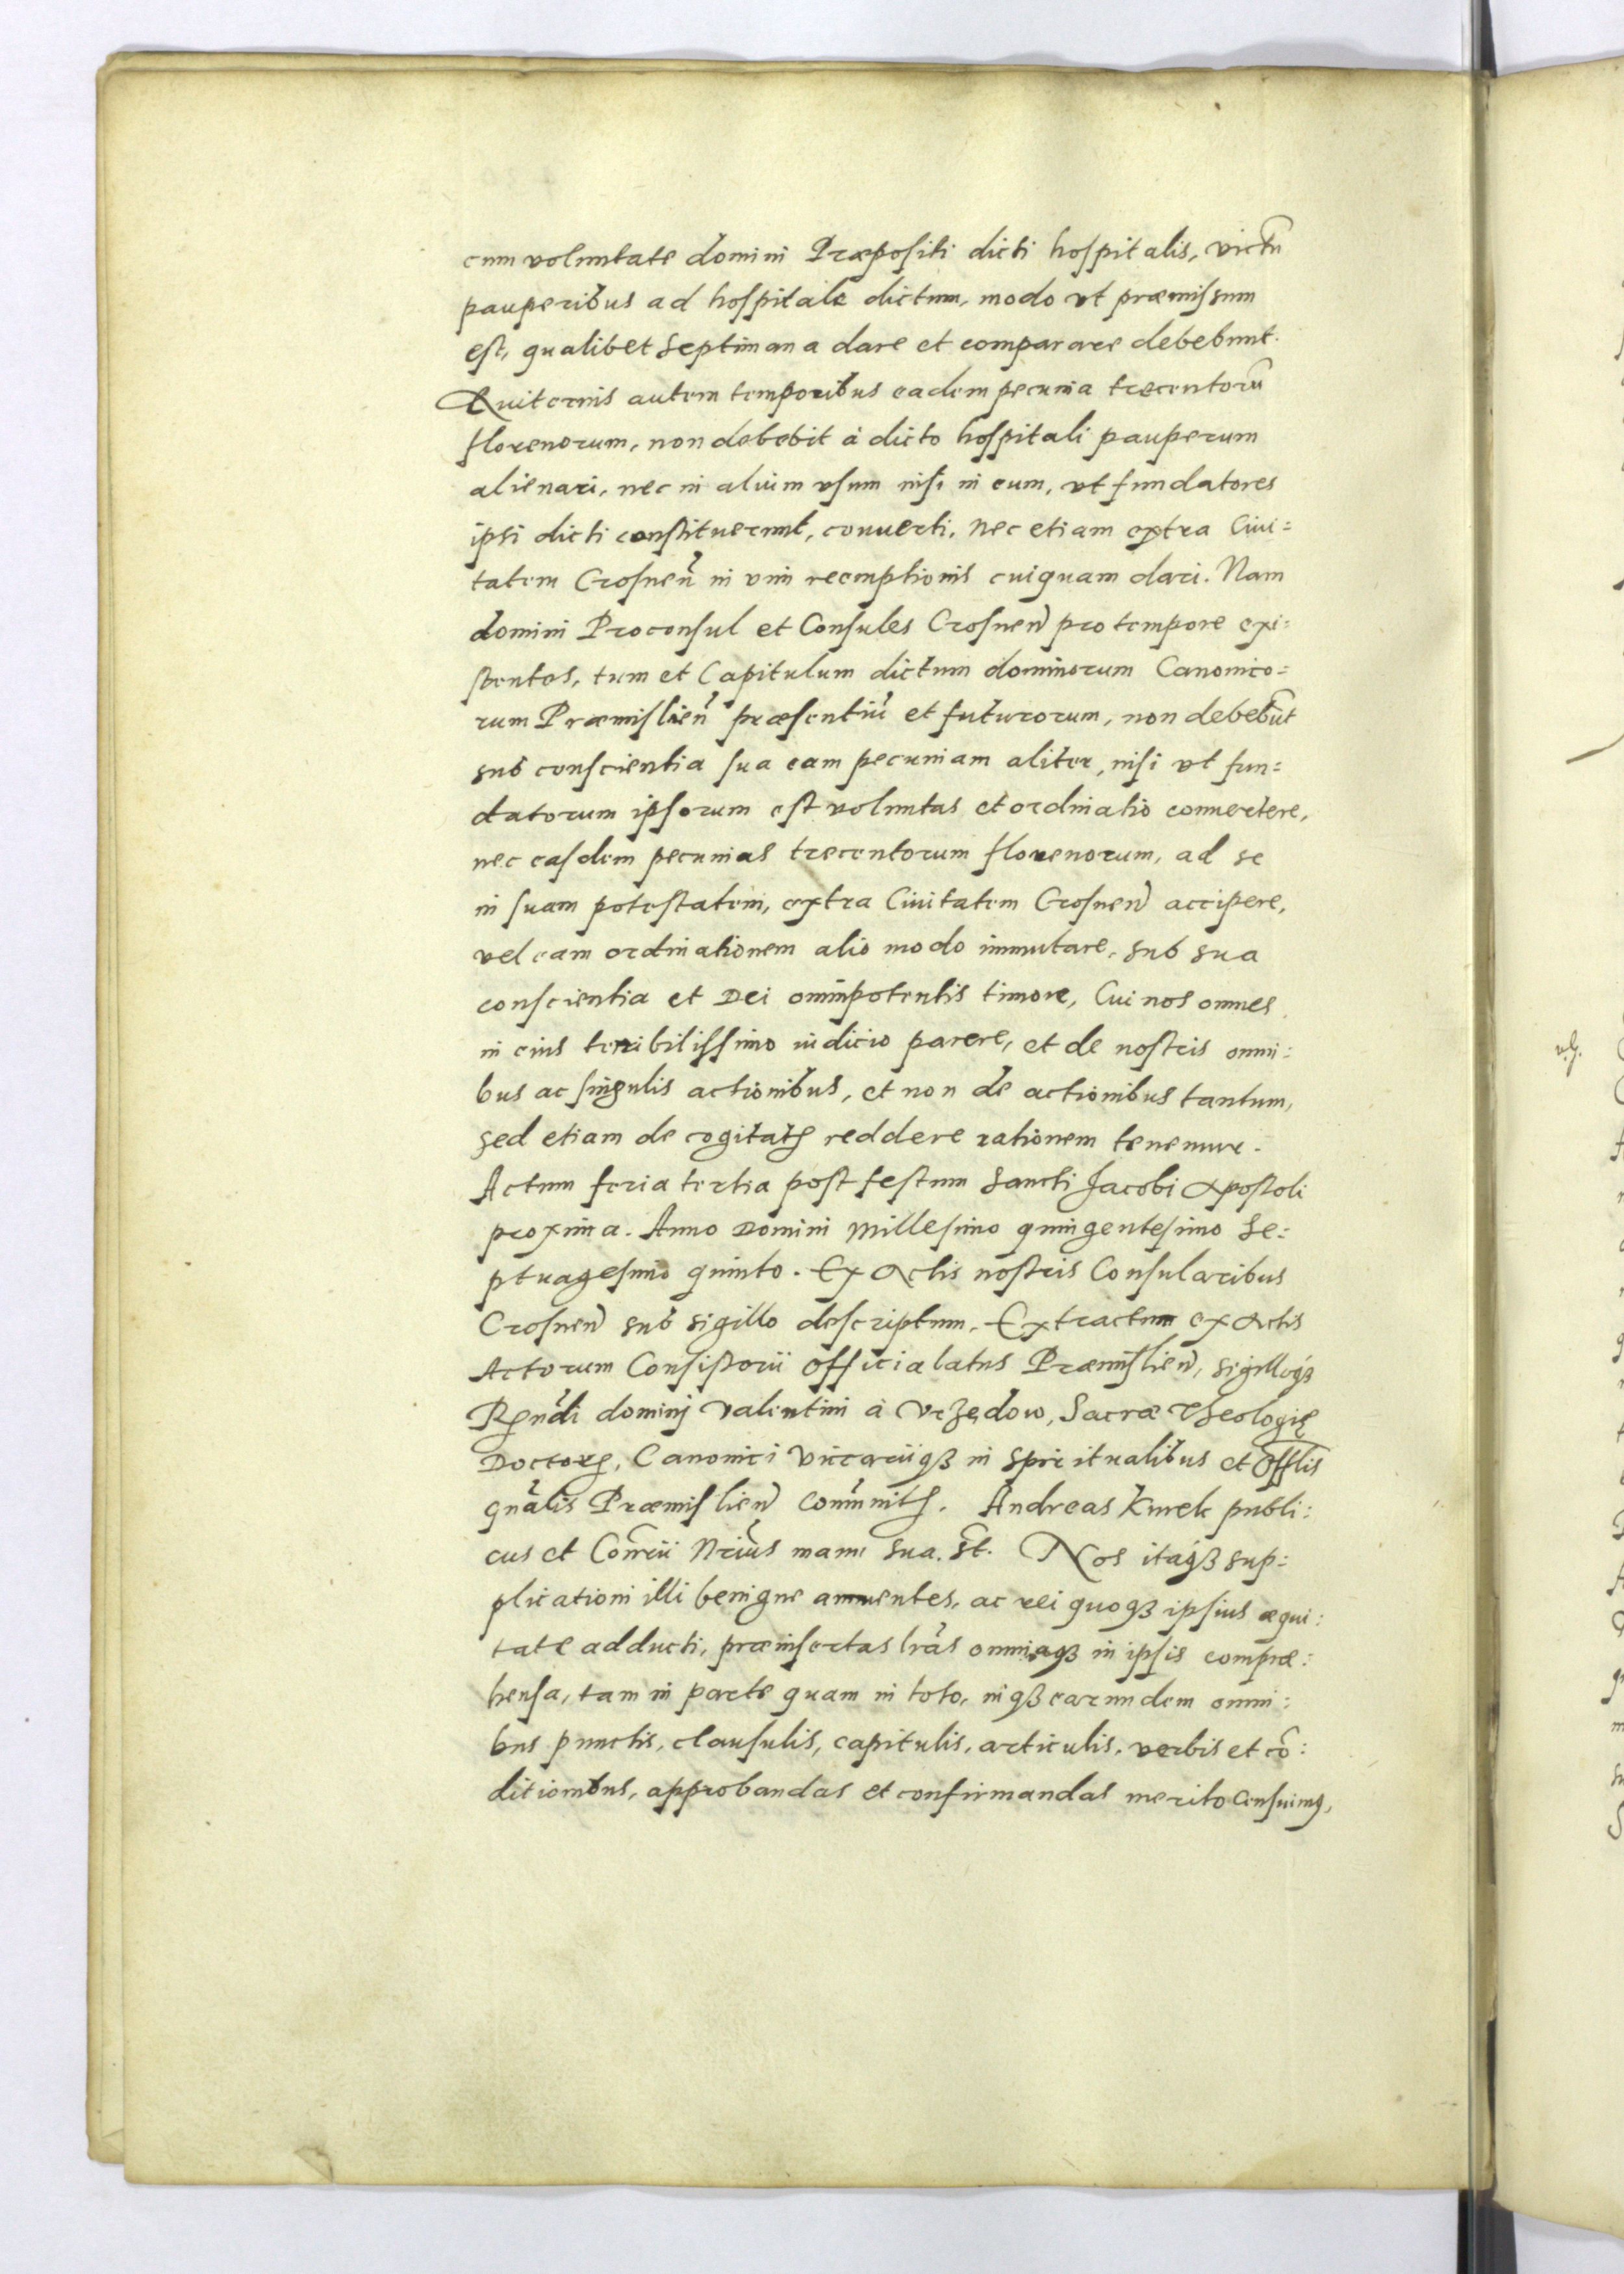 cum voluntate domini Præpositi dicti hospitalis, victũ
pauperibus ad hospitale dictum, modo vt præmissum
est, qualibet Septimana dare et comparare debebunt.
Æuiternis autem temporibus eadem pecunia trecentorũ
florenorum, non debebit à dicto hospitali pauperum
alienari, nec in alium vsum nisi in eum, vt fundatores
ipsi dicti constituerunt, conuerti. Nec etiam extra Ciui:
tatem Crosneñ in vim reemptionis cuiquam dari. Nam
domini Proconsul et Consules Crosneñ pro tempore exi:
stentes, tum et Capitulum dictum dominorum Canonico:
rum Præmislieñ præsentiũ et futurorum, non debebũt
sub conscientia sua eam pecuniam aliter, nisi vt fun:
datorum ipsorum est voluntas et ordinatio conuertere,
nec easdem pecunias trecentorum florenorum, ad se
in suam potestatem, extra Ciuitatem Crosneñ accipere,
vel eam ordinationem alio modo immutare, sub sua
conscientia et Dei omnipotentis timore, Cui nos omnes
in eius terribilissimo iudicio parere, et de nostris omni:
bus ac singulis actionibus, et non de actionibus tantum,
sed etiam de cogitatꝭ reddere rationem tenemur.
Actum feria tertia post festum Sancti Jacobi Apostoli
proxima. Anno Domini Millesimo quingentesimo Se:
ptuagesimo quinto. Ex Actis nostris Consularibus
Crosneñ sub sigillo descriptum. Extractum ex Actis
Actorum Consistorii Officialatus Præmislieñ, sigilloqꝫ
Rp̃ndi dominj Valentini à Vrzędow, Sacræ Theologię
Doctorꝭ, Canonici Vicariiqꝫ in Spiritualibus et Offlis
gnãlis Præmislieñ com̃unitꝭ. Andreas Kurek publi:
cus et Con̄rii Nrius manu sua. sst. Nos itaqꝫ sup:
plicationi illi benigne annuentes, ac rei quoqꝫ ipsius æqui:
tate adducti, præinsertas lrãs omniaqꝫ in ipsis compræ:
hensa, tam in parte quam in toto, inqꝫ earundem omni:
bus punctis, clausulis, capitulis, articulis, verbis et cõ:
ditionibus, approbandas et confirmandas merito censuimꝰ,